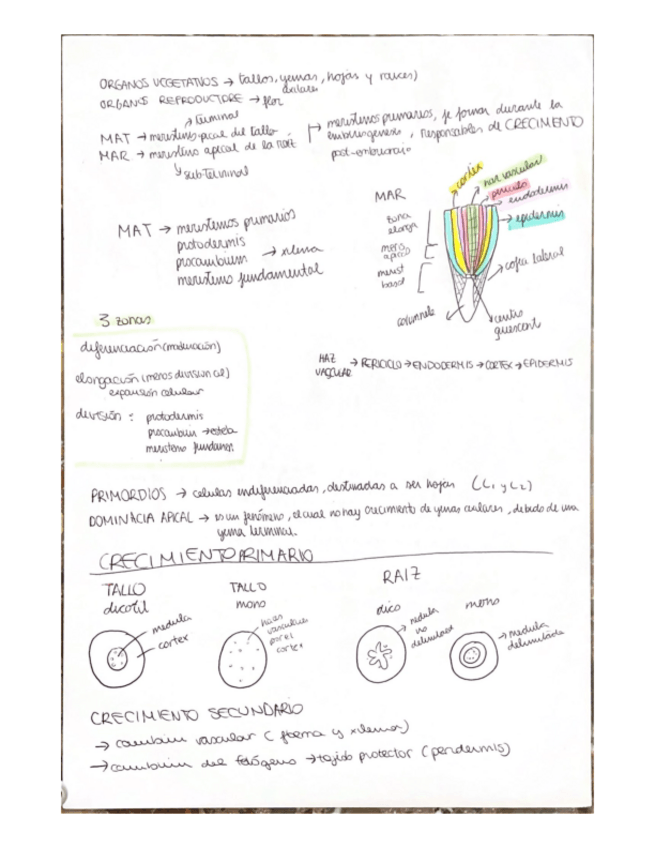 ORGANOS VEGETATIVOS → tallos, yemas, hojas y raices)
axilares
ORGANOS REPRODUCTORE → flor
↗ terminal
MAT → meristemo apical del tallo
MAR → meristemo apical de la raiz
↘ subterminal
→ meristemos primarios, se forman durante la
embriogenesis, responsables de CRECIMIENTO
post-embrionario
MAT → meristemos primarios
protodermis
procambium → xilema
meristemo fundamental
MAR
cortex
haz vascular
periciclo
endodermis
→ epidermis
zona
elong
meris
apical
merist
basal
cofia lateral
columnela
centro
quiescent
3 zonas
diferenciación (maduración)
elongación (menos division cel)
expansión celular
división : protodermis
procambium → estela
meristemo fundamen.
HAZ
VASCULAR → PERICICLO → ENDODERMIS → CORTEX → EPIDERMIS
PRIMORDIOS → celulas indiferenciadas, destinadas a ser hojas (L1 y L2)
DOMINACIA APICAL → es un fenómeno, el cual no hay crecimiento de yemas axilares, debido de una
yema terminal.
CRECIMIENTO PRIMARIO
TALLO
dicotil
medula
cortex
TALLO
mono
haces
vasculares
por el
cortex
RAIZ
dico
medula
no
delimitada
mono
→ medula
delimitada
CRECIMIENTO SECUNDARIO
→ cambium vascular ( floema y xilema)
→ cambium del felógeno → tejido protector (peridermis)